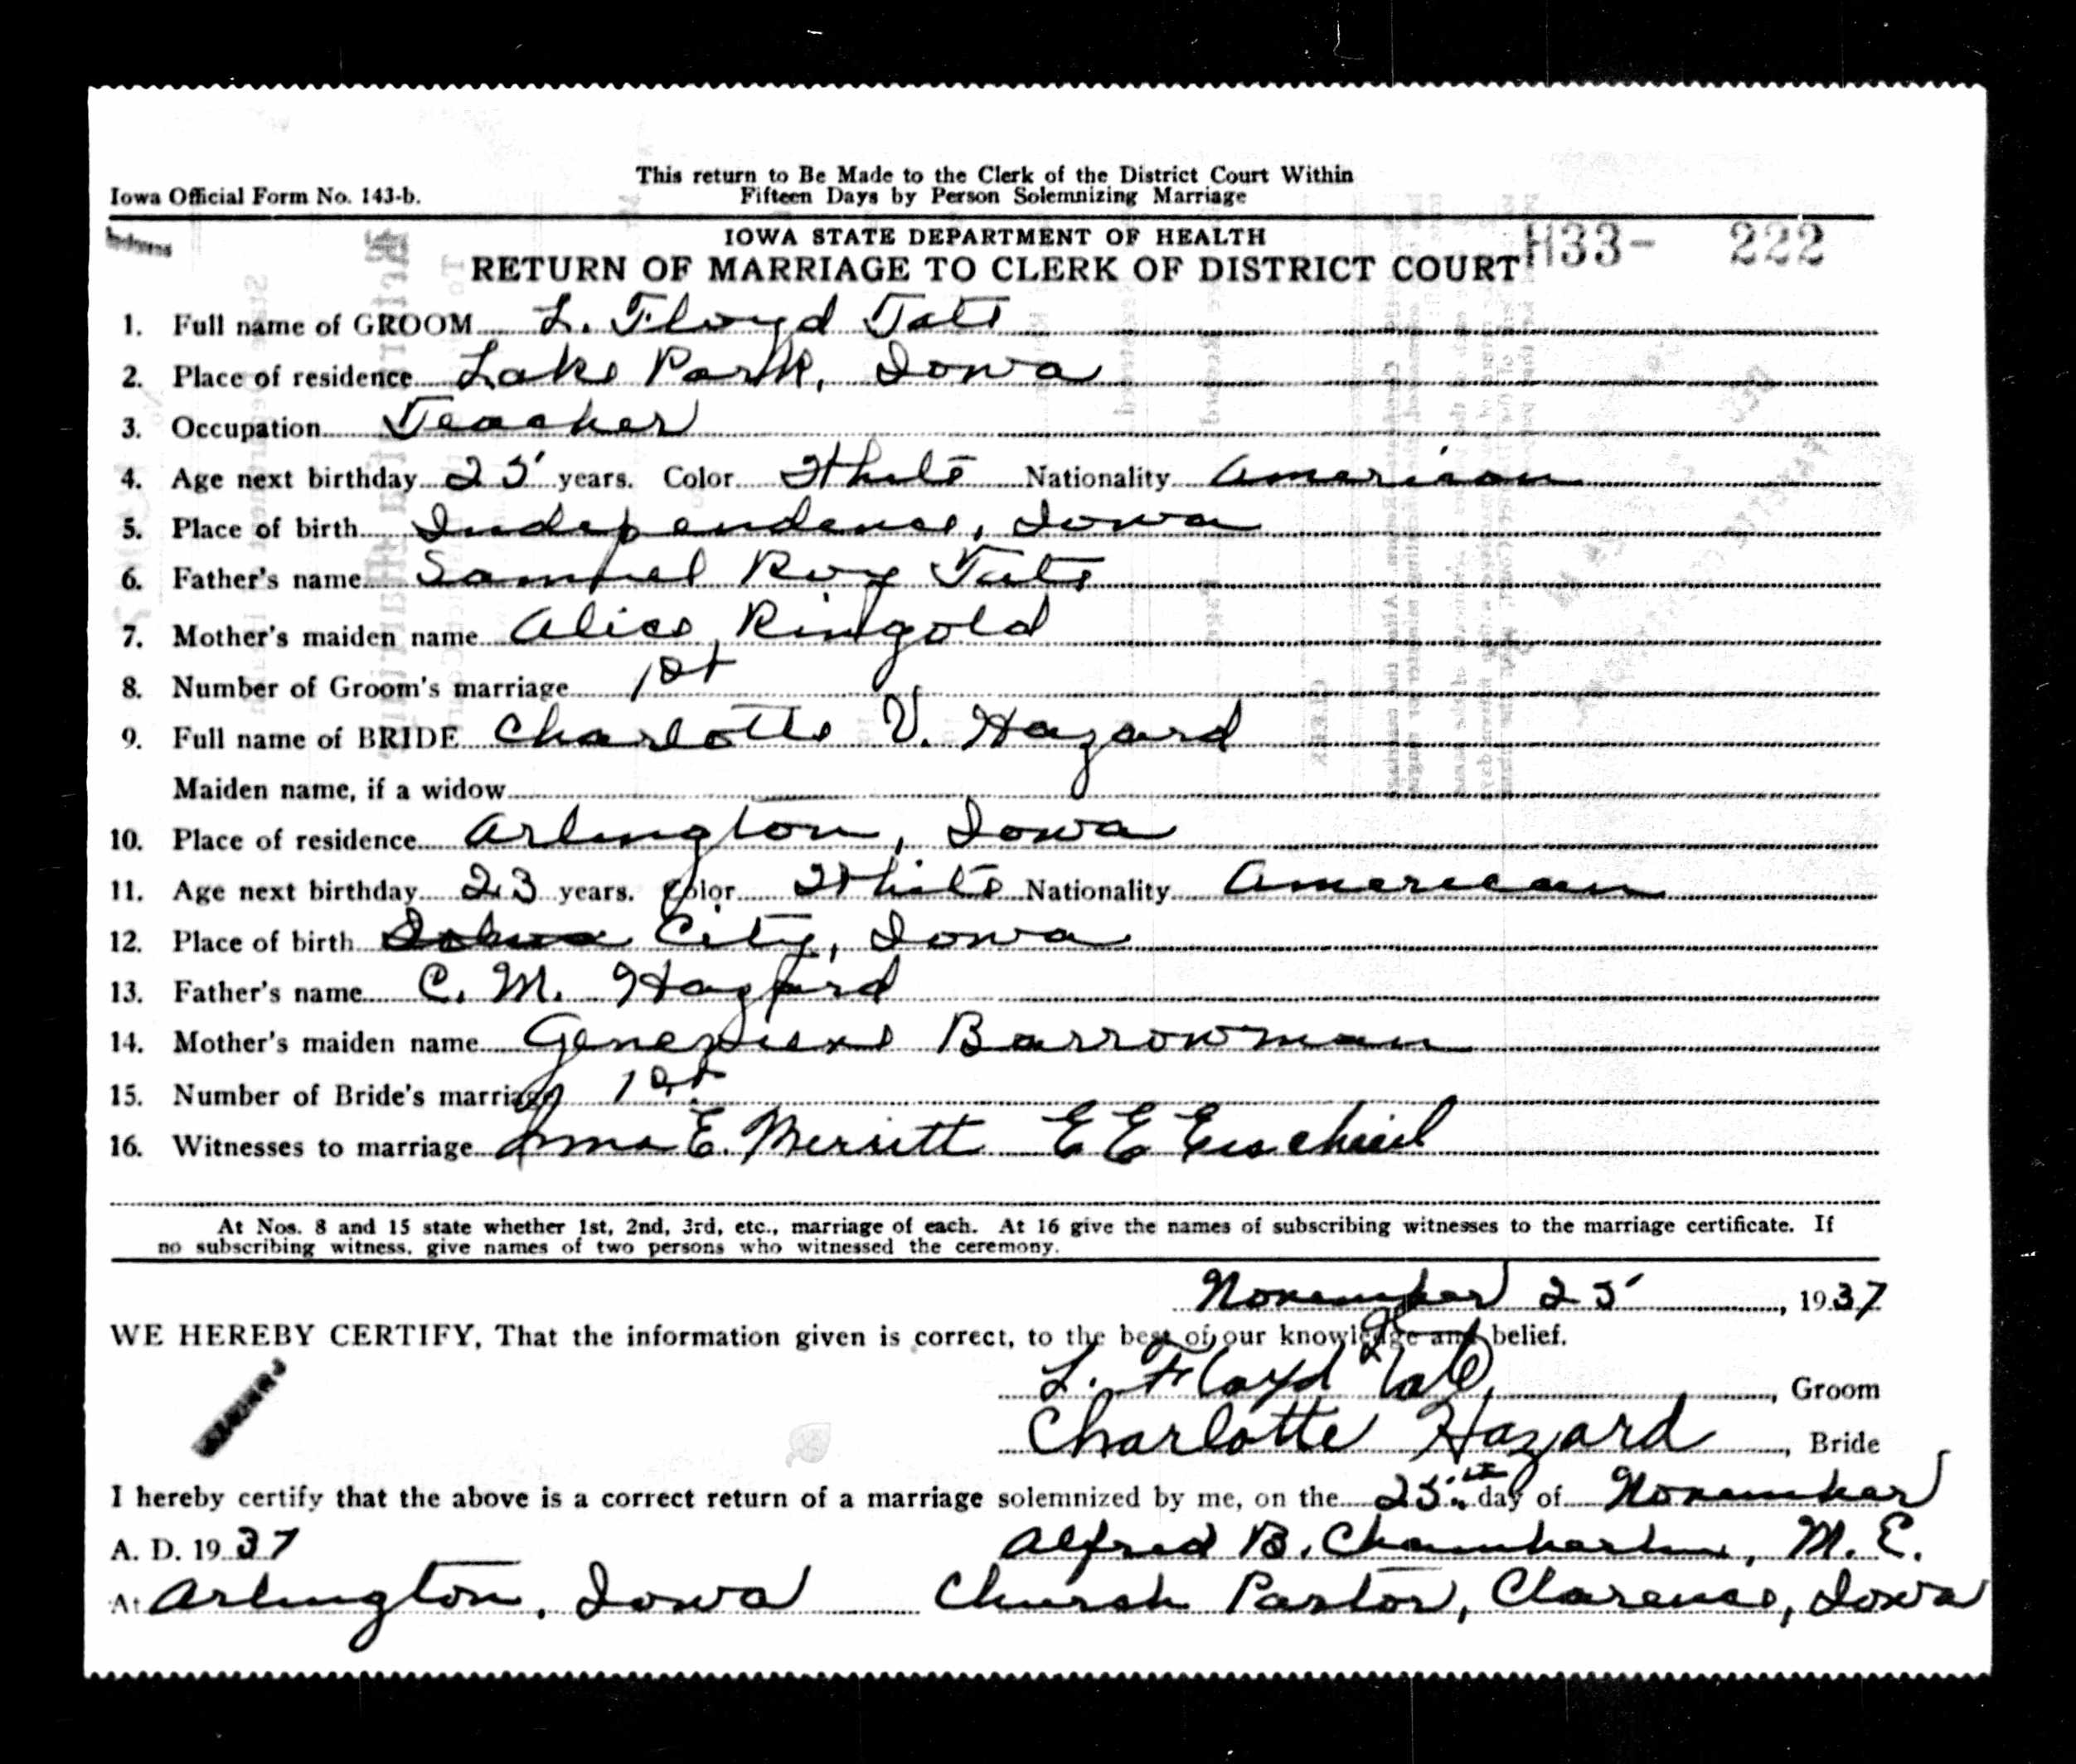 This return to Be Made to the Clerk of the District Court Within
Iowa Official Form No. 143-b. Fifteen Days by Person Solemnizing Marriage
IOWA STATE DEPARTMENT OF HEALTH
RETURN OF MARRIAGE TO CLERK OF DISTRICT COURT H33- 222
1. Full name of GROOM L. Floyd Tate
2. Place of residence Lake Park, Iowa
3. Occupation Teacher
4. Age next birthday 25 years. Color White Nationality American
5. Place of birth Independence, Iowa
6. Father's name Samuel Roy Tate
7. Mother's maiden name Alice Ringold
8. Number of Groom's marriage 1st
9. Full name of BRIDE Charlotte V. Hazard
Maiden name, if a widow
10. Place of residence Arlington, Iowa
11. Age next birthday 23 years. Color White Nationality American
12. Place of birth City, Iowa
13. Father's name C. M. Hazard
14. Mother's maiden name Genevieve Barrowman
15. Number of Bride's marriage 1st
16. Witnesses to marriage E. Merritt E E
At Nos. 8 and 15 state whether 1st, 2nd, 3rd, etc., marriage of each. At 16 give the names of subscribing witnesses to the marriage certificate. If
no subscribing witness, give names of two persons who witnessed the ceremony.
November 25, 1937
WE HEREBY CERTIFY, That the information given is correct, to the best of our knowledge and belief.
L. Floyd Tate, Groom
Charlotte Hazard, Bride
I hereby certify that the above is a correct return of a marriage solemnized by me, on the 25th day of November
A. D. 1937 Alfred B. Chamberlin, M. E.
At Arlington, Iowa Church Pastor, Clarence, Iowa